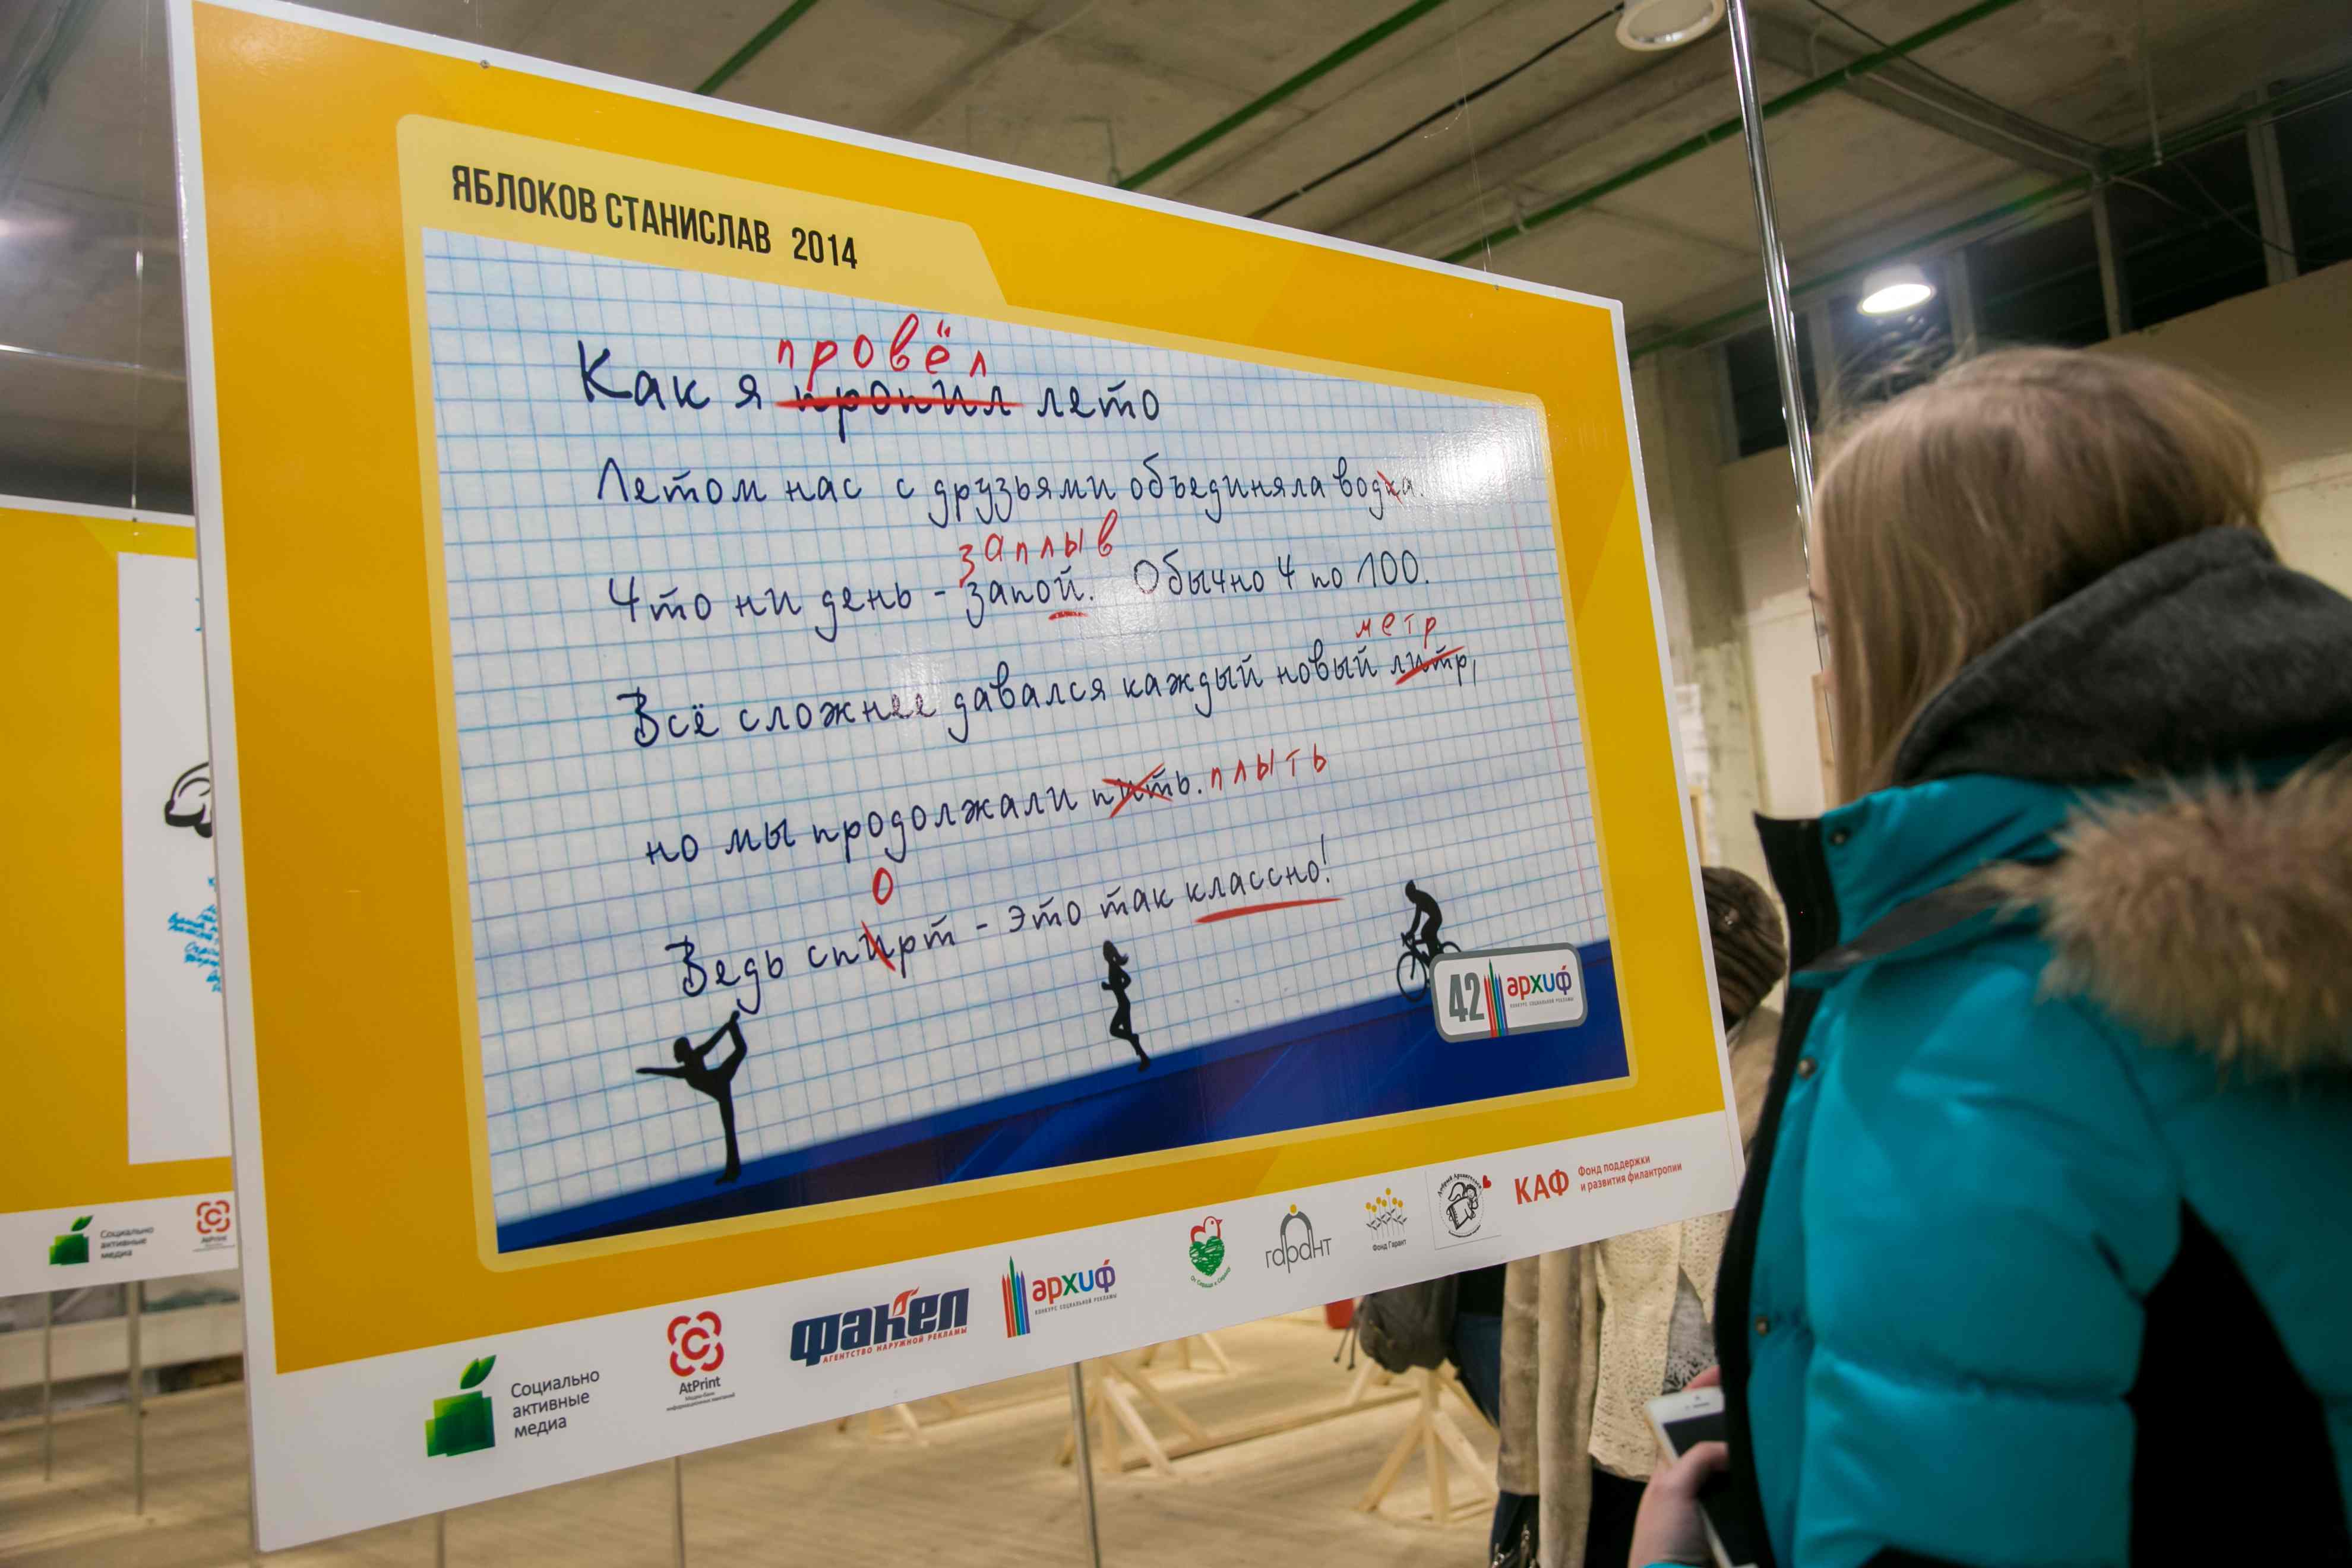 ЯБЛОКОВ СТАНИСЛАВ 2014
провёл
Как я пропил лето
Летом нас с друзьями объединяла водка.
заплыв
Что ни день - запой. Обычно 4 по 100.
метр
Всё сложнее давался каждый новый литр,
но мы продолжали пить. плыть
о
Ведь спирт - это так классно!
42 архиф
КОНКУРС СОЦИАЛЬНОЙ РЕКЛАМЫ
Социально
активные
медиа
AtPrint
Социально
активные
медиа
AtPrint
Медиа-банк
информационных кампаний
факел
АГЕНТСТВО НАРУЖНОЙ РЕКЛАМЫ
архиф
КОНКУРС СОЦИАЛЬНОЙ РЕКЛАМЫ
От Сердца к Сердцу
гарант
Фонд Гарант
КАФ
Фонд поддержки
и развития филантропии